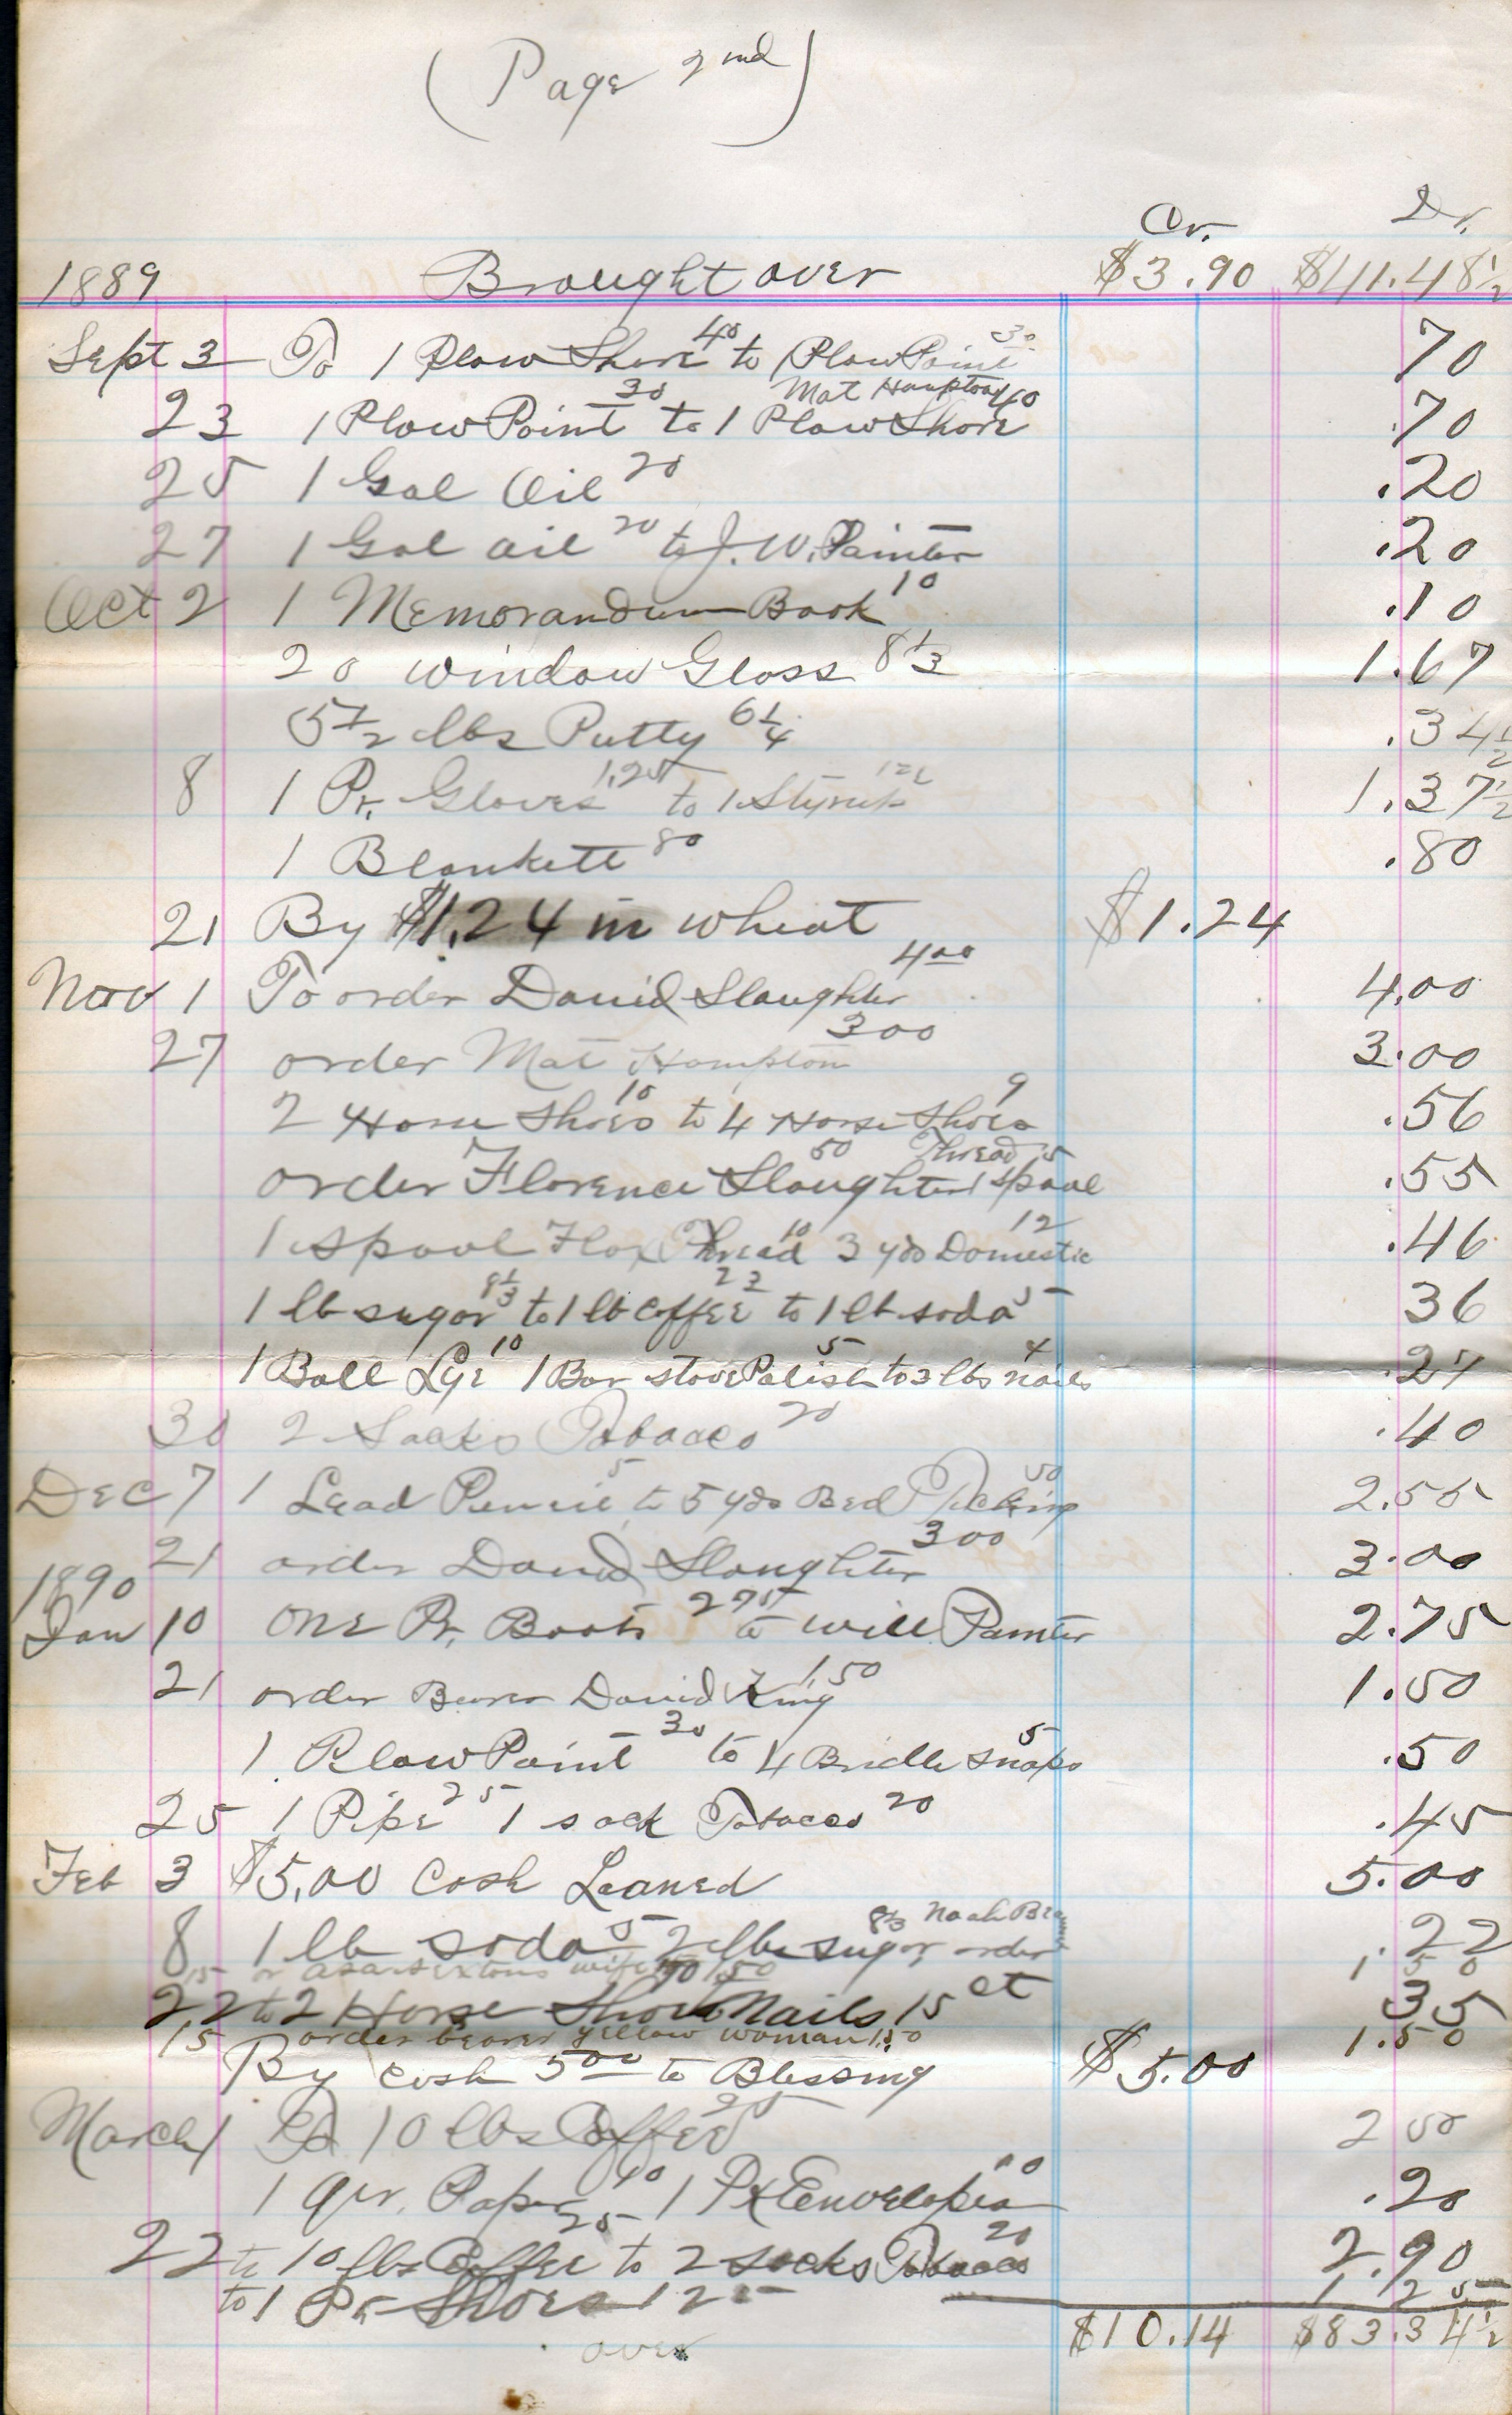 (Page 2nd)
Cr. Dr.
1889 Brought over $3.90 $41.48½
Sept 3 To 1 Plow Shore 40 to 1 Plow Point 30 70
Mat Hampton
23 1 Plow Point 30 to 1 Plow Shore 40 .70
25 1 Gal Oil 20 .20
27 1 Gal Oil 20 to J. W. Painter .20
Oct 2 1 Memorandum Book 10 .10
20 window Glass 8⅓ 1.67
5½ lbs Putty 6¼ .34½
8 1 Pr. Gloves 1.25 to 1 Styrup 12½ 1.37½
1 Blankett 80 .80
21 By $1.24 in wheat $1.24
Nov 1 To order David Slaughter 4.00 4.00
27 order Mat Hampton 300 3.00
2 Horse Shoes 10 to 4 Horse Shoes 9 .56
order Florence Slaughter 50 1 spool Thread 5 .55
1 spool Flax Thread 10 3 yds Domestic 12 .46
1 lb sugar 8⅓ to 1 lb coffee 22 to 1 lb soda 5 36
1 Ball Lye 10 1 Bar stove Polish 5 to 3 lbs nails 4 .27
30 2 Sacks Tobacco 20 .40
Dec 7 1 Lead Pencil 5 to 5 yds Bed Ticking 50 2.55
21 order David Slaughter 300 3.00
1890
Jan 10 one Pr. Boots 275 to Will Painter 2.75
21 order Bearer David King 1.50 1.50
1 Plow Point 30 to 4 Bridle snaps 5 .50
25 1 Pipe 25 1 sack Tobacco 20 .45
Feb 3 $5.00 Cash Loaned 5.00
8 1 lb soda 5 2 lbs sugar 8⅓ order Noah .22
15 or sextons wife 1.50 1 50
22 to 2 Horse Shoes Nails 15 ct 35
15 order bearer yellow woman 1.50 1.50
By cash 5.00 to Blessing $5.00
March 1 To 10 lbs Coffee 25 2 50
1 qr. Paper 10 1 Pk Envelopes 10 .20
22 to 10 lbs Coffee 25 to 2 sacks Tobacco 20 2.90
to 1 Pr Shoes 125 1 25
$10.14 $83.34½
over